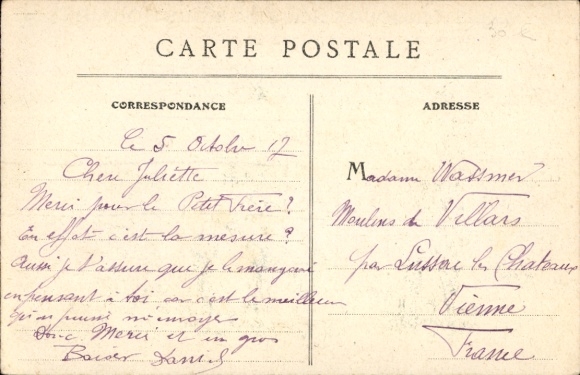 CARTE POSTALE
CORRESPONDANCE
ADRESSE
le 5 Octobre 17
Chere Juliette
Merci pour le Petit Frère?
En effet c'est la mesure?
Aussi je t'assure que je le mangerai
en pensant à toi car c'est le meilleur
Donc Merci et un gros
Baiser Daniel
Madame Wassmer
Moulins de Villars
par Lussac les Chateaux
Vienne
France